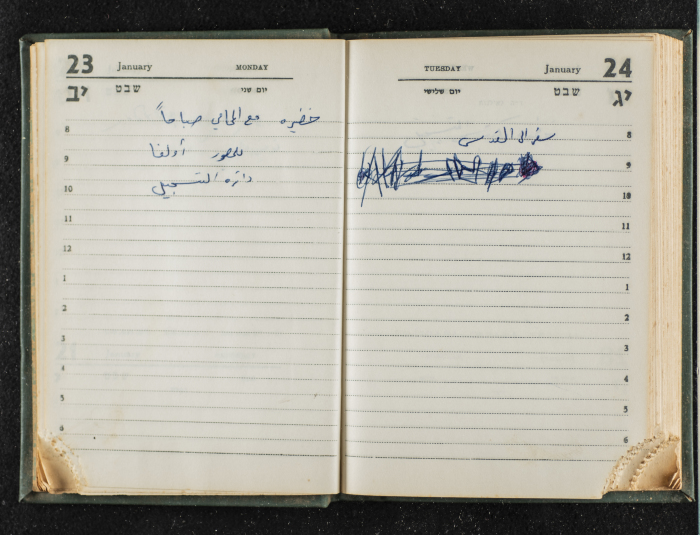 23 January MONDAY
יב שבט יום שני
خضيره مع المحامي صباحاً
8
للحضور
9
دائرة التسجيل
10
11
12
1
2
3
4
5
6
TUESDAY January 24
יום שלישי שבט יג
8
سفر الى القدس
9
10
11
12
1
2
3
4
5
6